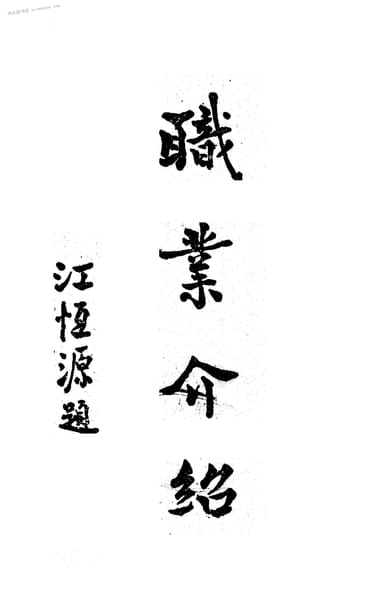 職業介紹
江恆源題